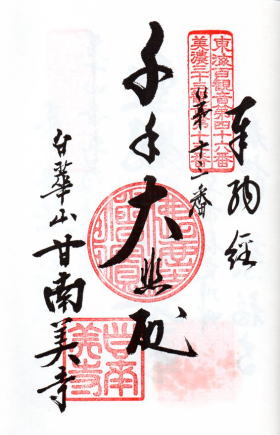 奉納経
東海百観音第四十六番
美濃三十三観音第十三番
第十三番
千手大悲殿
白華山甘南美寺
甘南美寺